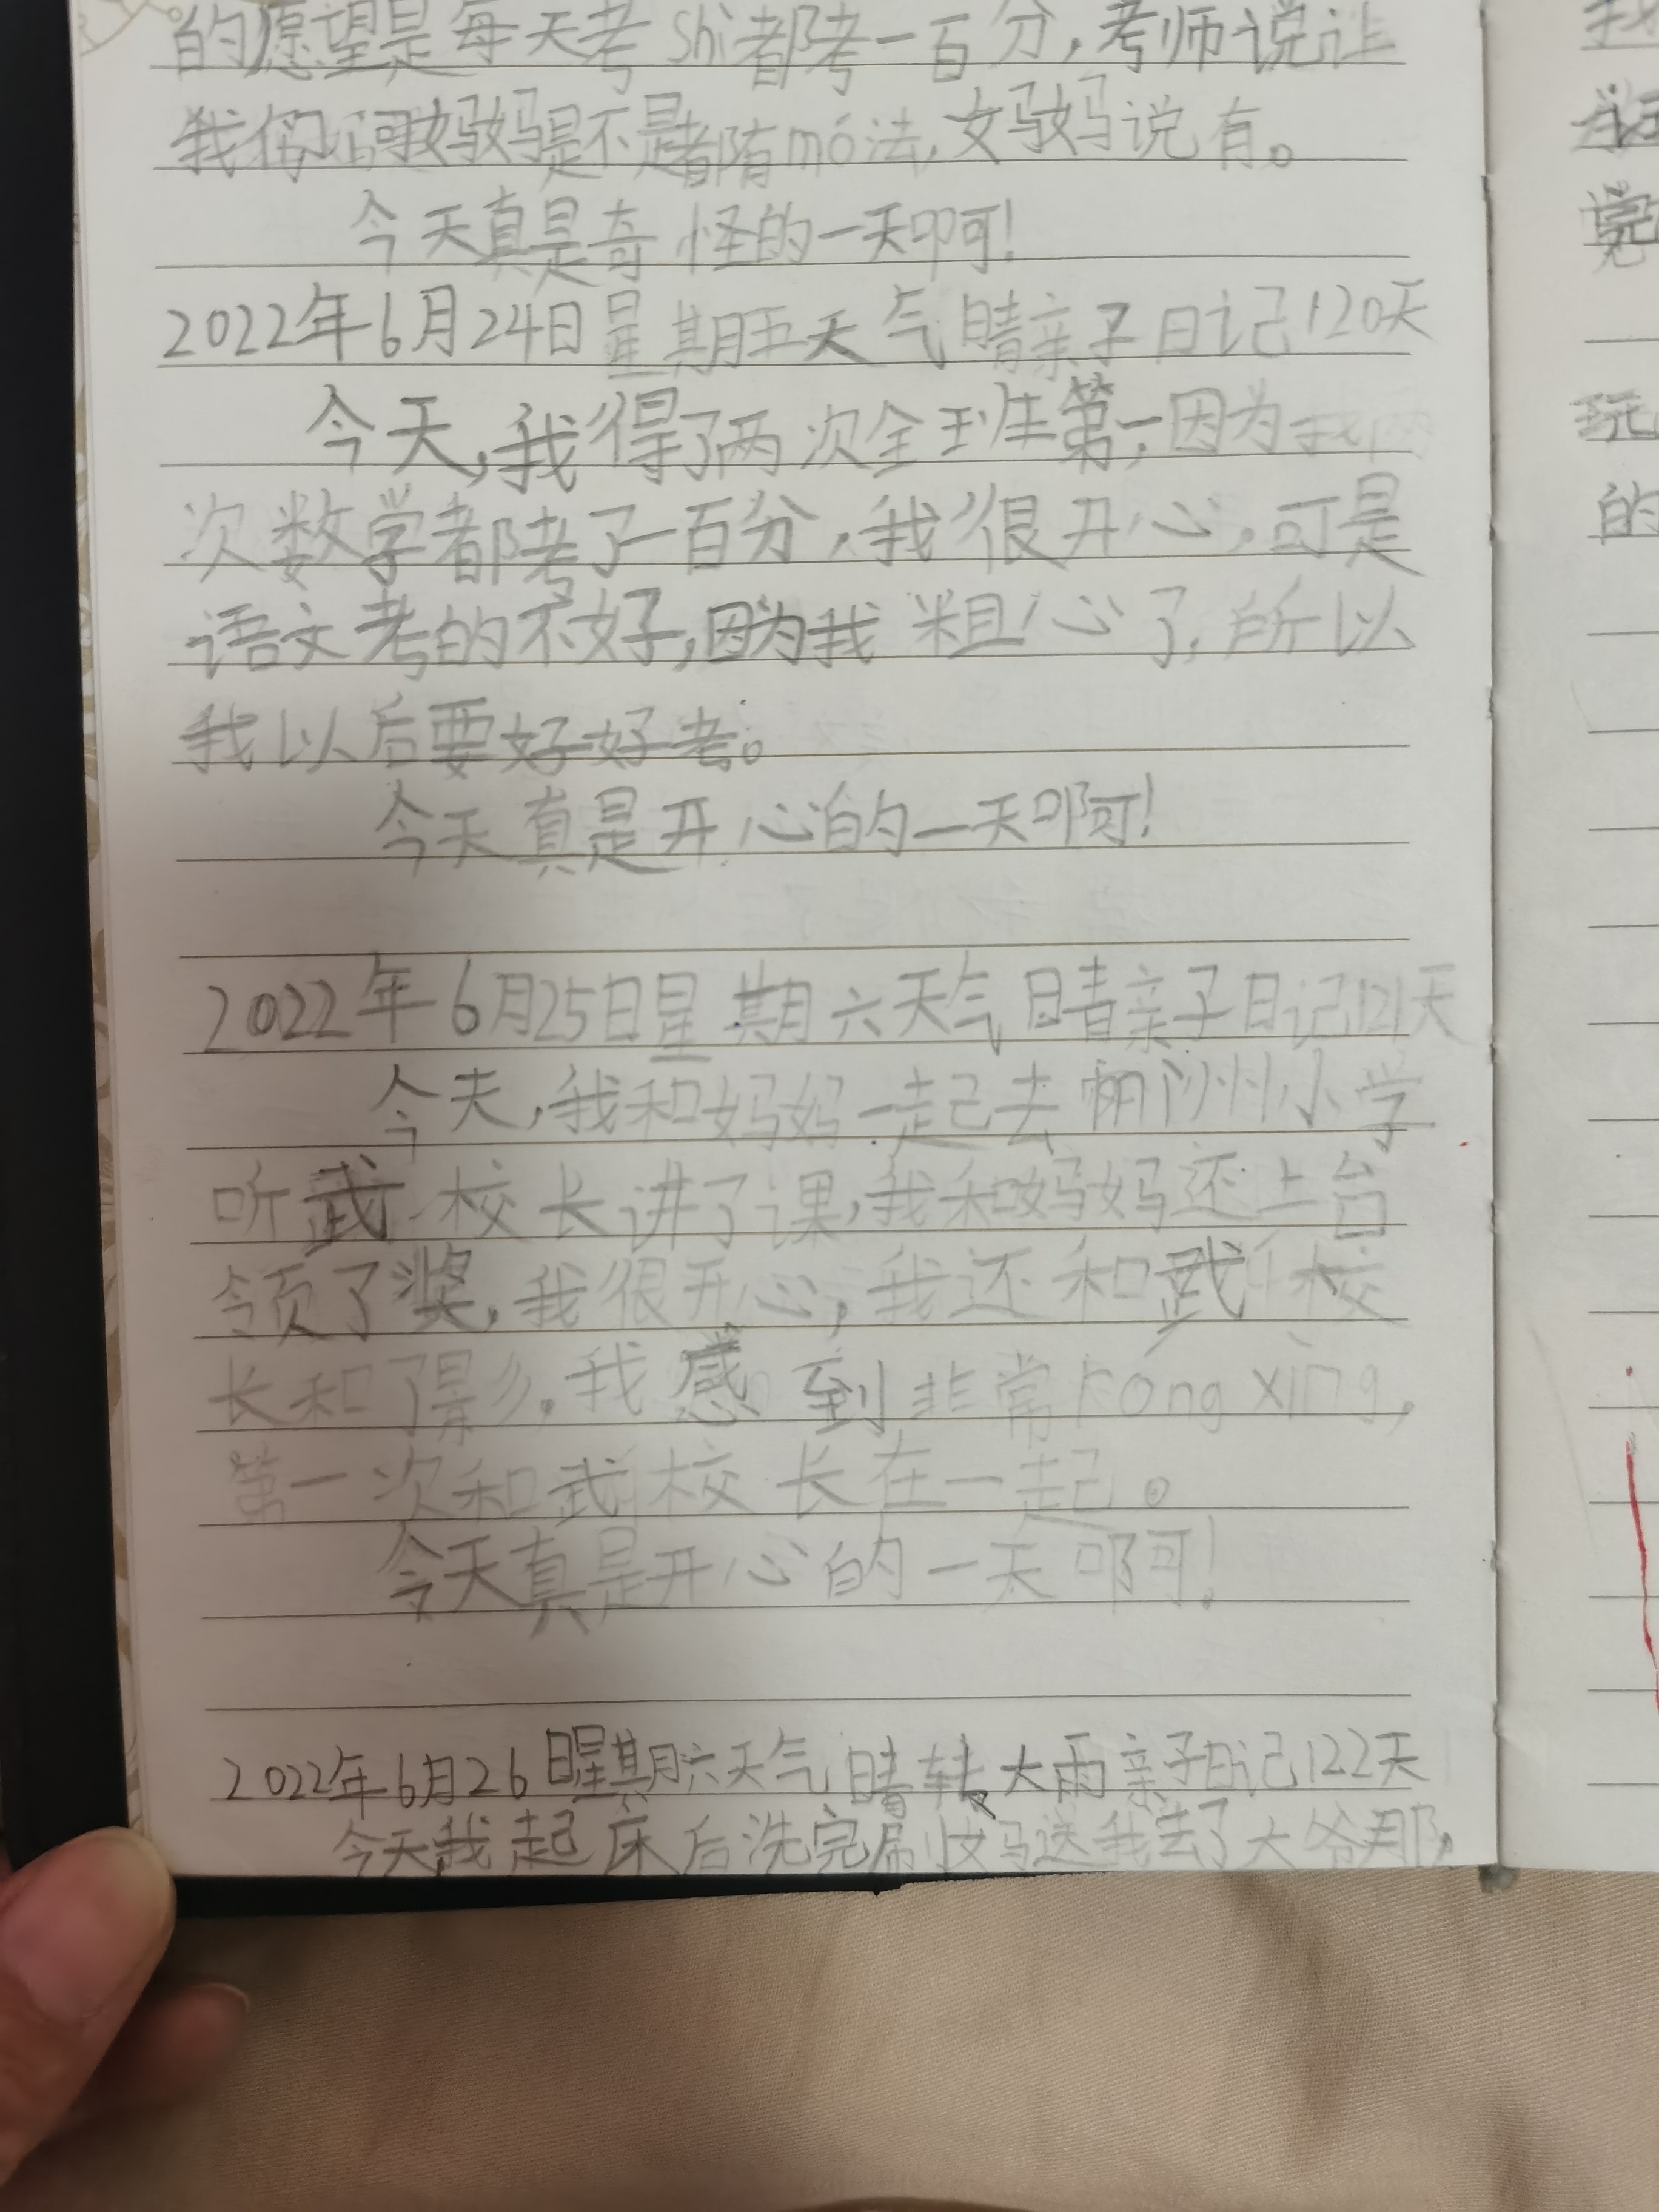 的愿望是每天考shì都考一百分,考师说让
我们问妈妈是不是都有mó法,妈妈说有。
今天真是奇怪的一天啊!
2022年6月24日星期五天气晴亲子日记120天
今天,我得了两次全班第一,因为我两
次数学都考了一百分,我很开心,可是
语文考的不好,因为我粗心了,所以
我以后要好好考。
今天真是开心的一天啊!
2022年6月25日星期六天气晴亲子日记121天
今天,我和妈妈一起去柳州小学
听武校长讲了课,我和妈妈还上台
领了奖,我很开心,我还和武校
长和了影,我感到非常rong xìng,
第一次和武校长在一起。
今天真是开心的一天啊!
2022年6月26日星期六天气晴转大雨亲子日记122天
今天,我起床后洗完刷妈送我去了大爷那,
我
觉
玩
的